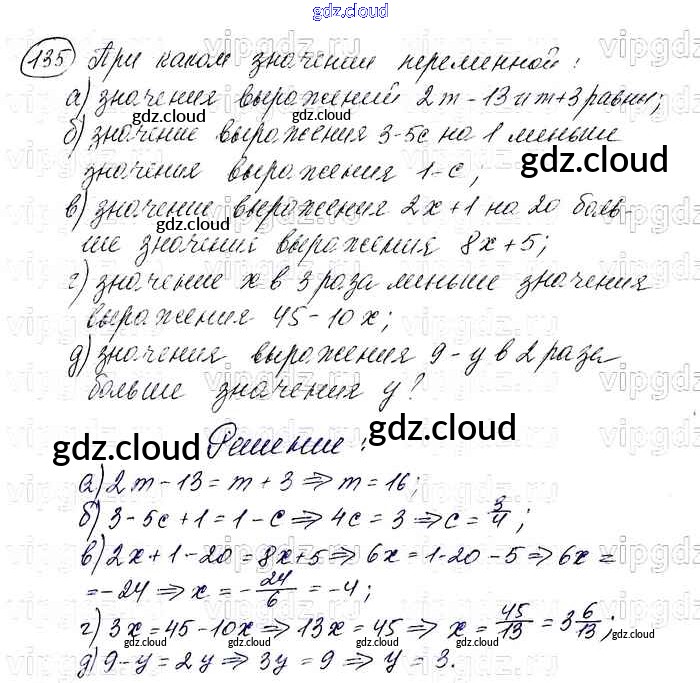 gdz.cloud
135 При каком значении переменной:
а) значения выражений 2m-13 и m+3 равны;
б) значение выражения 3-5с на 1 меньше
значения выражения 1-с;
в) значение выражения 2x+1 на 20 боль-
ше значения выражения 8x+5;
г) значение x в 3 раза меньше значения
выражения 45-10x;
д) значения выражения 9-y в 2 раза
больше значения y?
Решение:
а) 2m-13=m+3⇒m=16;
б) 3-5с+1=1-с⇒4с=3⇒с=3/4;
в) 2x+1-20=8x+5⇒6x=1-20-5⇒6x=
=-24⇒x=-24/6=-4;
г) 3x=45-10x⇒13x=45⇒x=45/13=3 6/13;
д) 9-y=2y⇒3y=9⇒y=3.